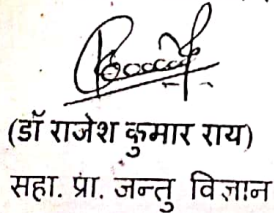 (डॉ राजेश कुमार राय)
सहा. प्रा. जन्तु विज्ञान